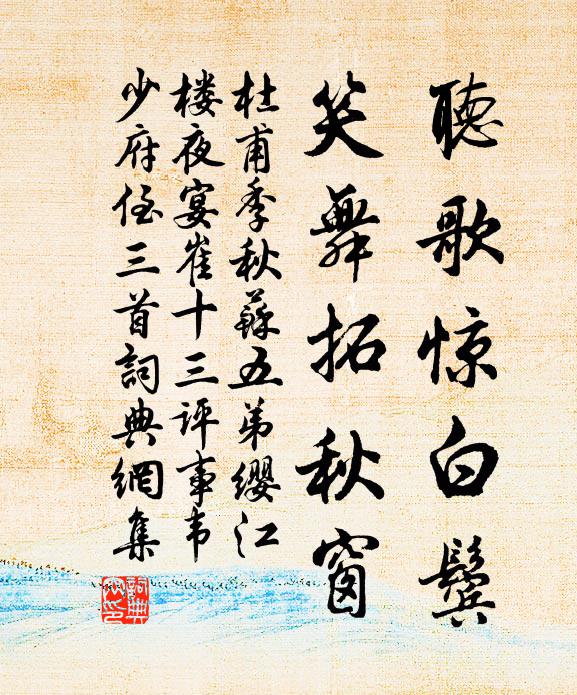 聽歌惊白鬓
笑舞拓秋窗
杜甫季秋蘇五弟缨江
楼夜宴崔十三评事韦
少府侄三首詞典網集